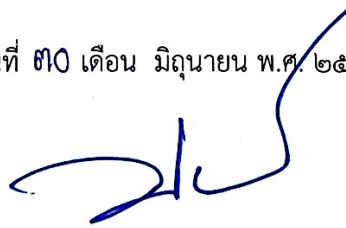 ที่ ๓๐ เดือน มิถุนายน พ.ศ. ๒๕